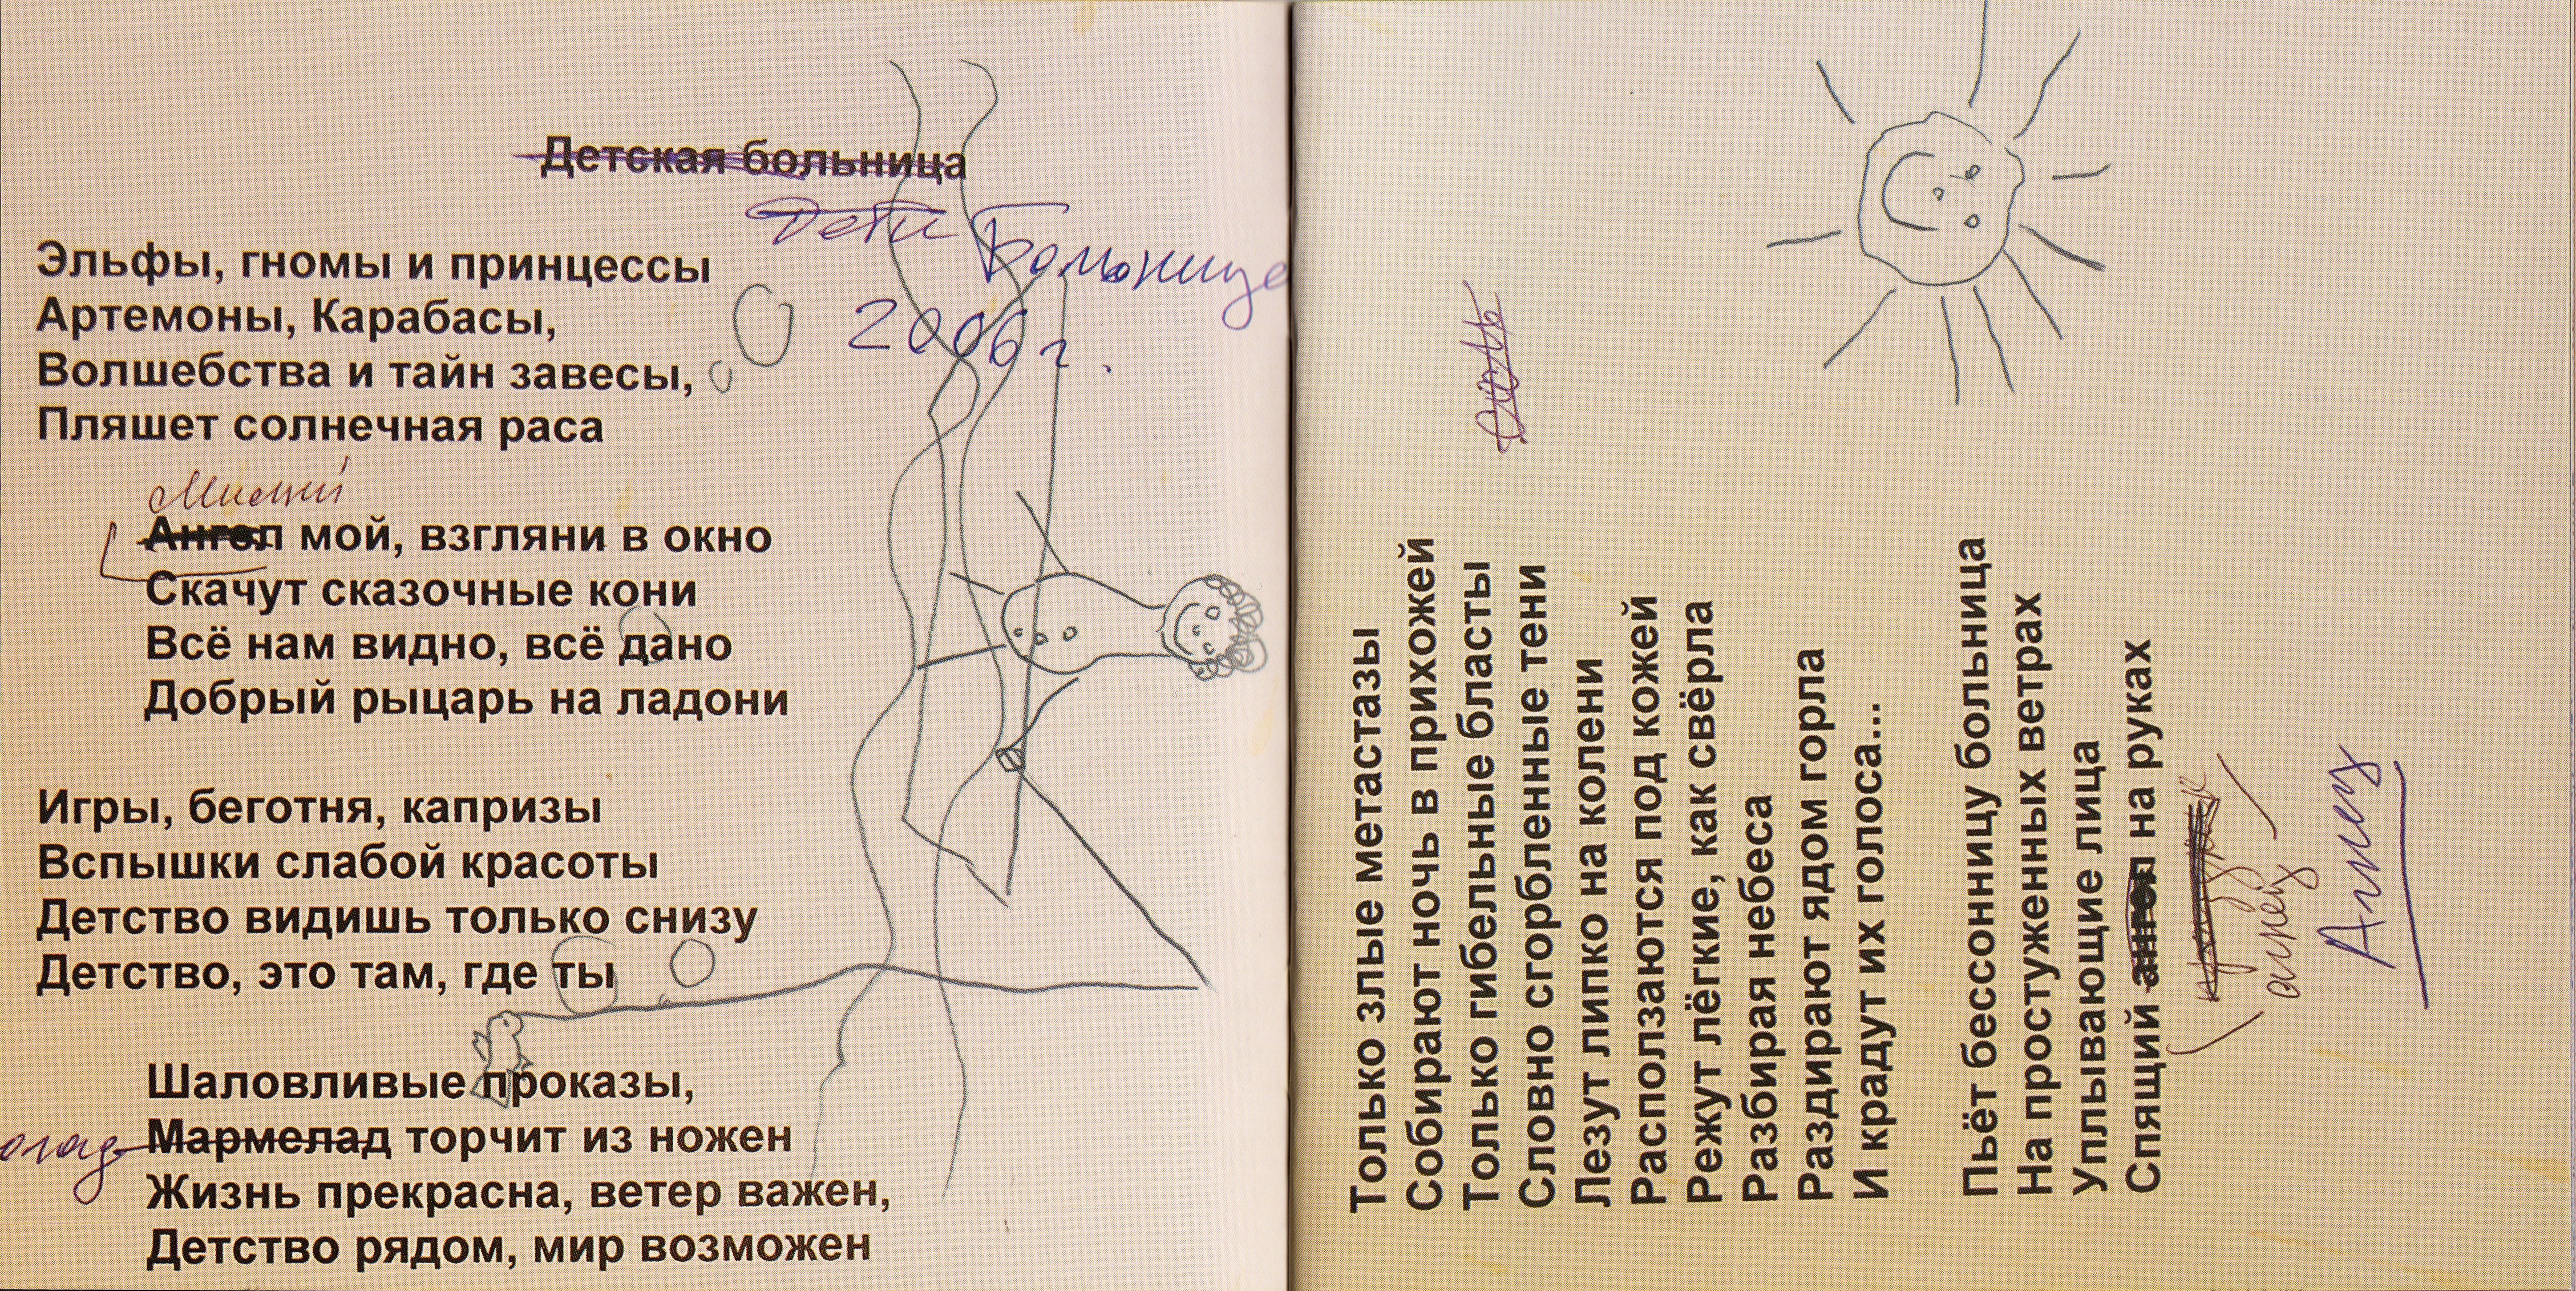 Детская больница
Дети Больница
2006 г.
Эльфы, гномы и принцессы
Артемоны, Карабасы,
Волшебства и тайн завесы,
Пляшет солнечная раса
Ангел мой, взгляни в окно
Скачут сказочные кони
Всё нам видно, всё дано
Добрый рыцарь на ладони
Игры, беготня, капризы
Вспышки слабой красоты
Детство видишь только снизу
Детство, это там, где ты
Шаловливые проказы,
Мармелад торчит из ножен
Жизнь прекрасна, ветер важен,
Детство рядом, мир возможен
Только злые метастазы
Собирают ночь в прихожей
Только гибельные бласты
Словно сгорбленные тени
Лезут липко на колени
Расползаются под кожей
Режут лёгкие, как свёрла
Разбирая небеса
Раздирают ядом горла
И крадут их голоса...
Пьёт бессонницу больница
На простуженных ветрах
Уплывающие лица
Спящий ангел на руках